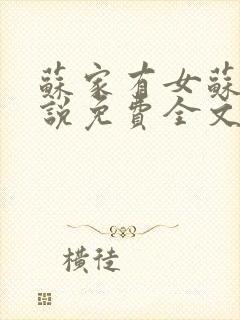 蘇家有女蘇
說免費全文
橫徒